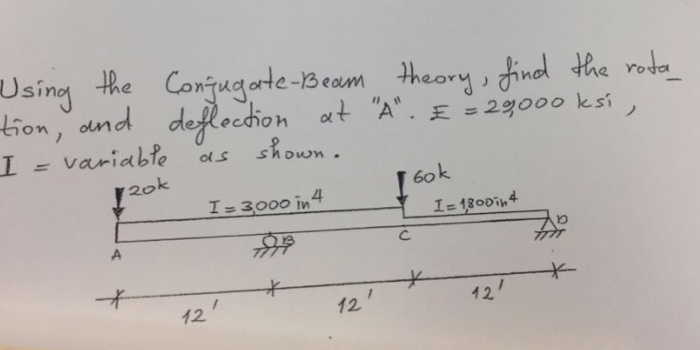 Using the Conjugate-Beam theory, find the rota_
tion, and deflection at "A". E = 29,000 ksi,
I = variable as shown.
20k
60k
I = 3,000 in4
I = 1,800 in4
A
B
C
D
12'
12'
12'